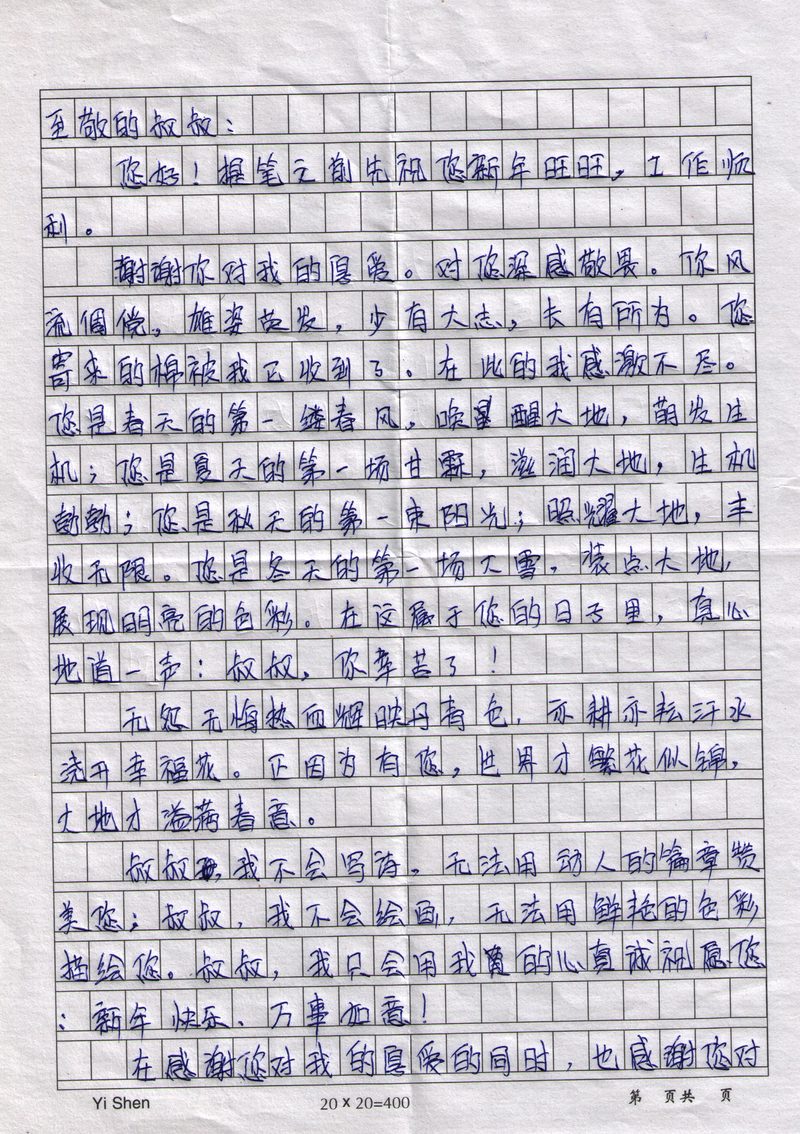 至敬的叔叔：
您好！握笔之前先祝您新年旺旺，工作顺
利。
谢谢你对我的厚爱。对您深感敬畏。你风
流倜傥，雄姿英发，少有大志，长有所为。您
寄来的棉被我已收到了。在此的我感激不尽。
您是春天的第一缕春风，唤醒大地，萌发生
机；您是夏天的第一场甘霖，滋润大地，生机
勃勃；您是秋天的第一束阳光；照耀大地，丰
收无限。您是冬天的第一场大雪，装点大地，
展现明亮的色彩。在这属于您的日子里，真心
地道一声：叔叔，你幸苦了！
无怨无悔热血辉映丹青色，亦耕亦耘汗水
浇开幸福花。正因为有您，世界才繁花似锦，
大地才溢满春意。
叔叔，我不会写诗。无法用动人的篇章赞
美您；叔叔，我不会绘画，无法用鲜艳的色彩
描绘您。叔叔，我只会用我的心真诚祝愿您
：新年快乐、万事如意！
在感谢您对我的厚爱的同时，也感谢您对
Yi Shen 20×20=400 第 页共 页